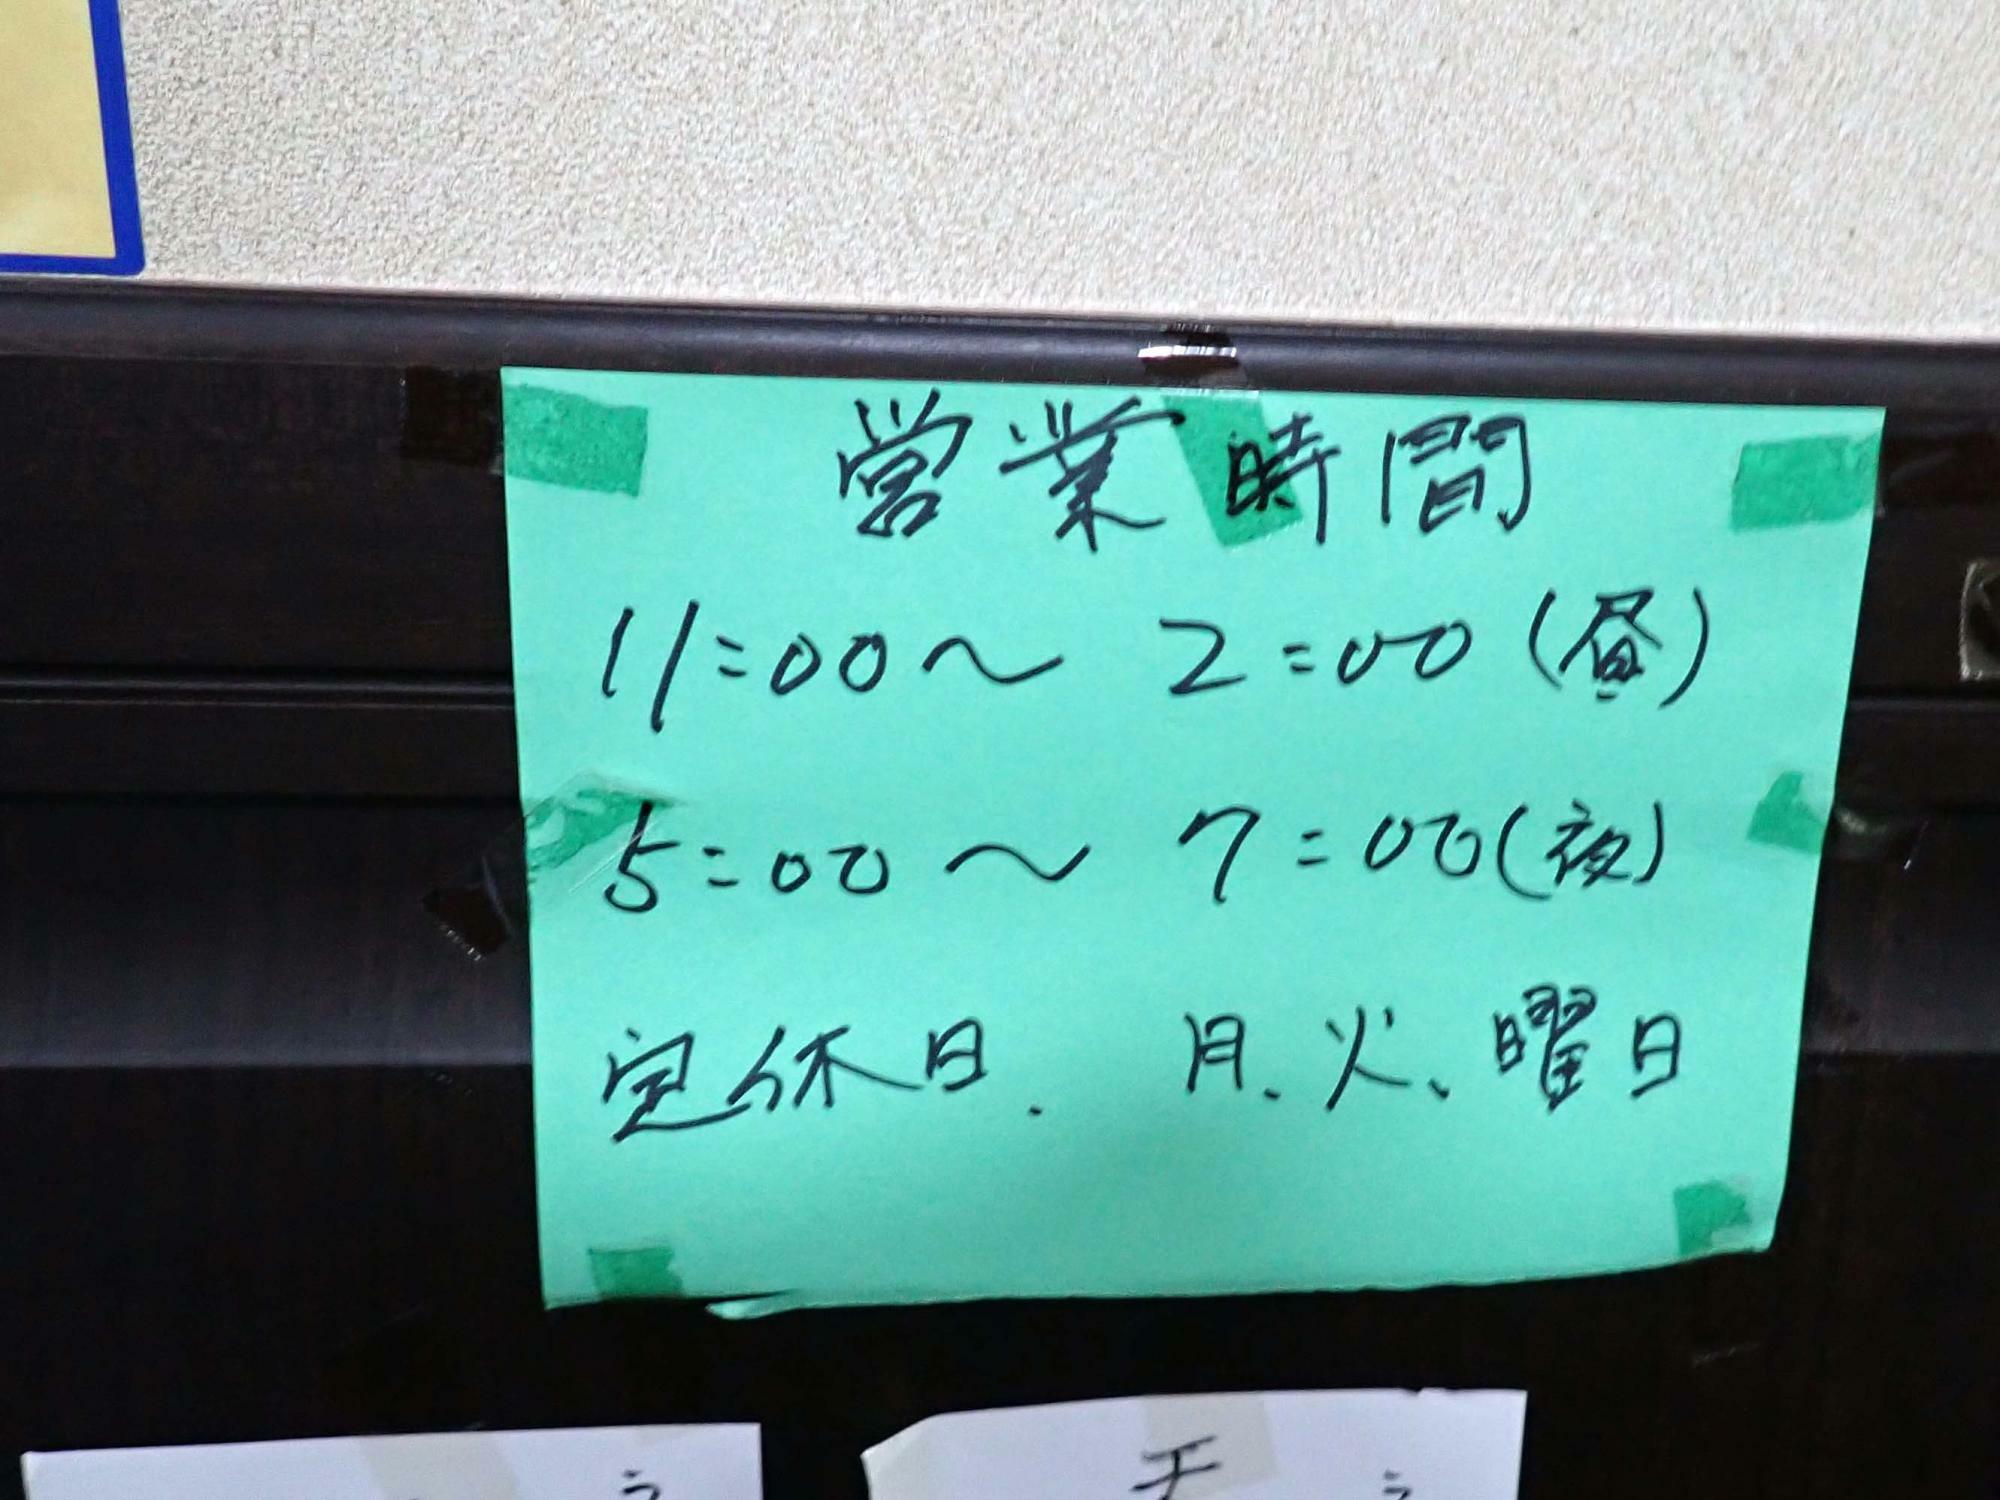 営業時間
11:00〜2:00(昼)
5:00〜7:00(夜)
定休日. 月、火、曜日
天